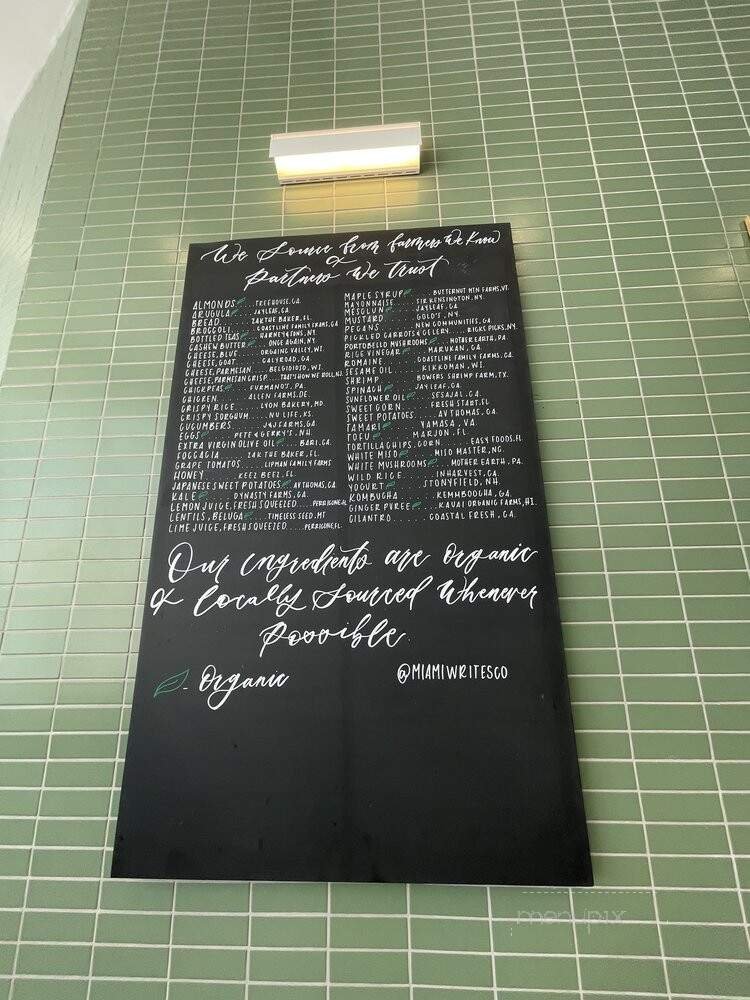 We Source from farmers We Know
&
Partners We Trust
ALMONDS....TREEHOUSE, CA.
ARUGULA....JAYLEAF, CA.
BREAD.....ZAK THE BAKER, FL.
BROCCOLI.....COASTLINE FAMILY FARMS, CA
BOTTLED TEAS....HARNEY & SONS, NY.
CASHEW BUTTER....ONCE AGAIN, NY.
CHEESE, BLUE.....ORGANIC VALLEY, WI.
CHEESE, GOAT.....CALYROAD, GA.
CHEESE, PARMESAN.....BELGIOIOSO, WI.
CHEESE, PARMESAN CRISP....THAT'S HOW WE ROLL, NJ.
CHICKPEAS....FURMANO'S, PA.
CHICKEN.....ALLEN FARMS, DE.
CRISPY RICE.....LYON BAKERY, MD.
CRISPY SORGHUM.....NU LIFE, KS.
CUCUMBERS.....J&J FARMS, GA.
EGGS....PETE & GERRY'S, NH.
EXTRA VIRGIN OLIVE OIL....BARI, CA.
FOCCACIA.....ZAK THE BAKER, FL.
GRAPE TOMATOS.....LIPMAN FAMILY FARMS
HONEY.....KEEZ BEEZ, FL.
JAPANESE SWEET POTATOES....AV THOMAS, CA.
KALE....DYNASTY FARMS, CA.
LEMON JUICE, FRESH SQUEEZED.....PERRICONE,
LENTILS, BELUGA....TIMELESS SEED, MT
LIME JUICE, FRESH SQUEEZED.....PERRICONE, FL.
MAPLE SYRUP....BUTTERNUT MTN FARMS, VT.
MAYONNAISE.....SIR KENSINGTON, NY.
MESCLUN....JAYLEAF, CA.
MUSTARD.....GOLD'S, NY.
PECANS.....NEW COMMUNITIES, GA.
PICKLED CARROTS & CELERY.....RICKS PICKS, NY.
PORTOBELLO MUSHROOMS....MOTHER EARTH, PA
RICE VINEGAR....MARUKAN, CA.
ROMAINE.....COASTLINE FAMILY FARMS, CA.
SESAME OIL.....KIKKOMAN, WI.
SHRIMP.....BOWERS SHRIMP FARM, TX.
SPINACH....JAYLEAF, CA.
SUNFLOWER OIL....SESAJAL, CA.
SWEET CORN.....FRESH START, FL
SWEET POTATOES.....AV THOMAS, CA.
TAMARI....YAMASA, VA.
TOFU....MARJON, FL
TORTILLA CHIPS, CORN.....EASY FOODS, FL
WHITE MISO....MISO MASTER, NC.
WHITE MUSHROOMS....MOTHER EARTH, PA.
WILD RICE.....INHARVEST, CA.
YOGURT....STONYFIELD, NH.
KOMBUCHA.....KEMHBOOCHA, CA.
GINGER PUREE....KAUAI ORGANIC FARMS, HI.
CILANTRO.....COASTAL FRESH, CA.
Our ingredients are organic
& locally Sourced Whenever
Possible.
- Organic
@MIAMIWRITESCO
menupix